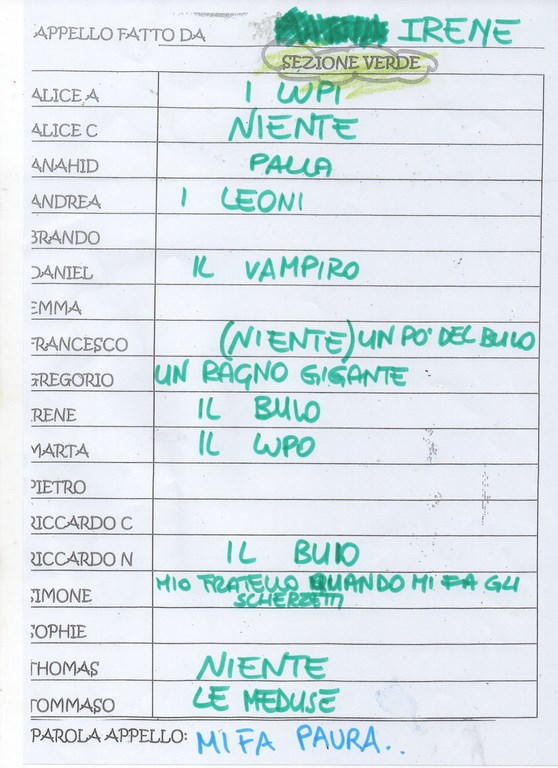 APPELLO FATTO DA IRENE
SEZIONE VERDE
ALICE A I LUPI
ALICE C NIENTE
ANAHID PALLA
ANDREA I LEONI
BRANDO
DANIEL IL VAMPIRO
EMMA
FRANCESCO (NIENTE) UN PO' DEL BUIO
GREGORIO UN RAGNO GIGANTE
IRENE IL BUIO
MARTA IL LUPO
PIETRO
RICCARDO C
RICCARDO N IL BUIO
SIMONE MIO FRATELLO QUANDO MI FA GLI
SCHERZETTI
SOPHIE
THOMAS NIENTE
TOMMASO LE MEDUSE
PAROLA APPELLO: MI FA PAURA..